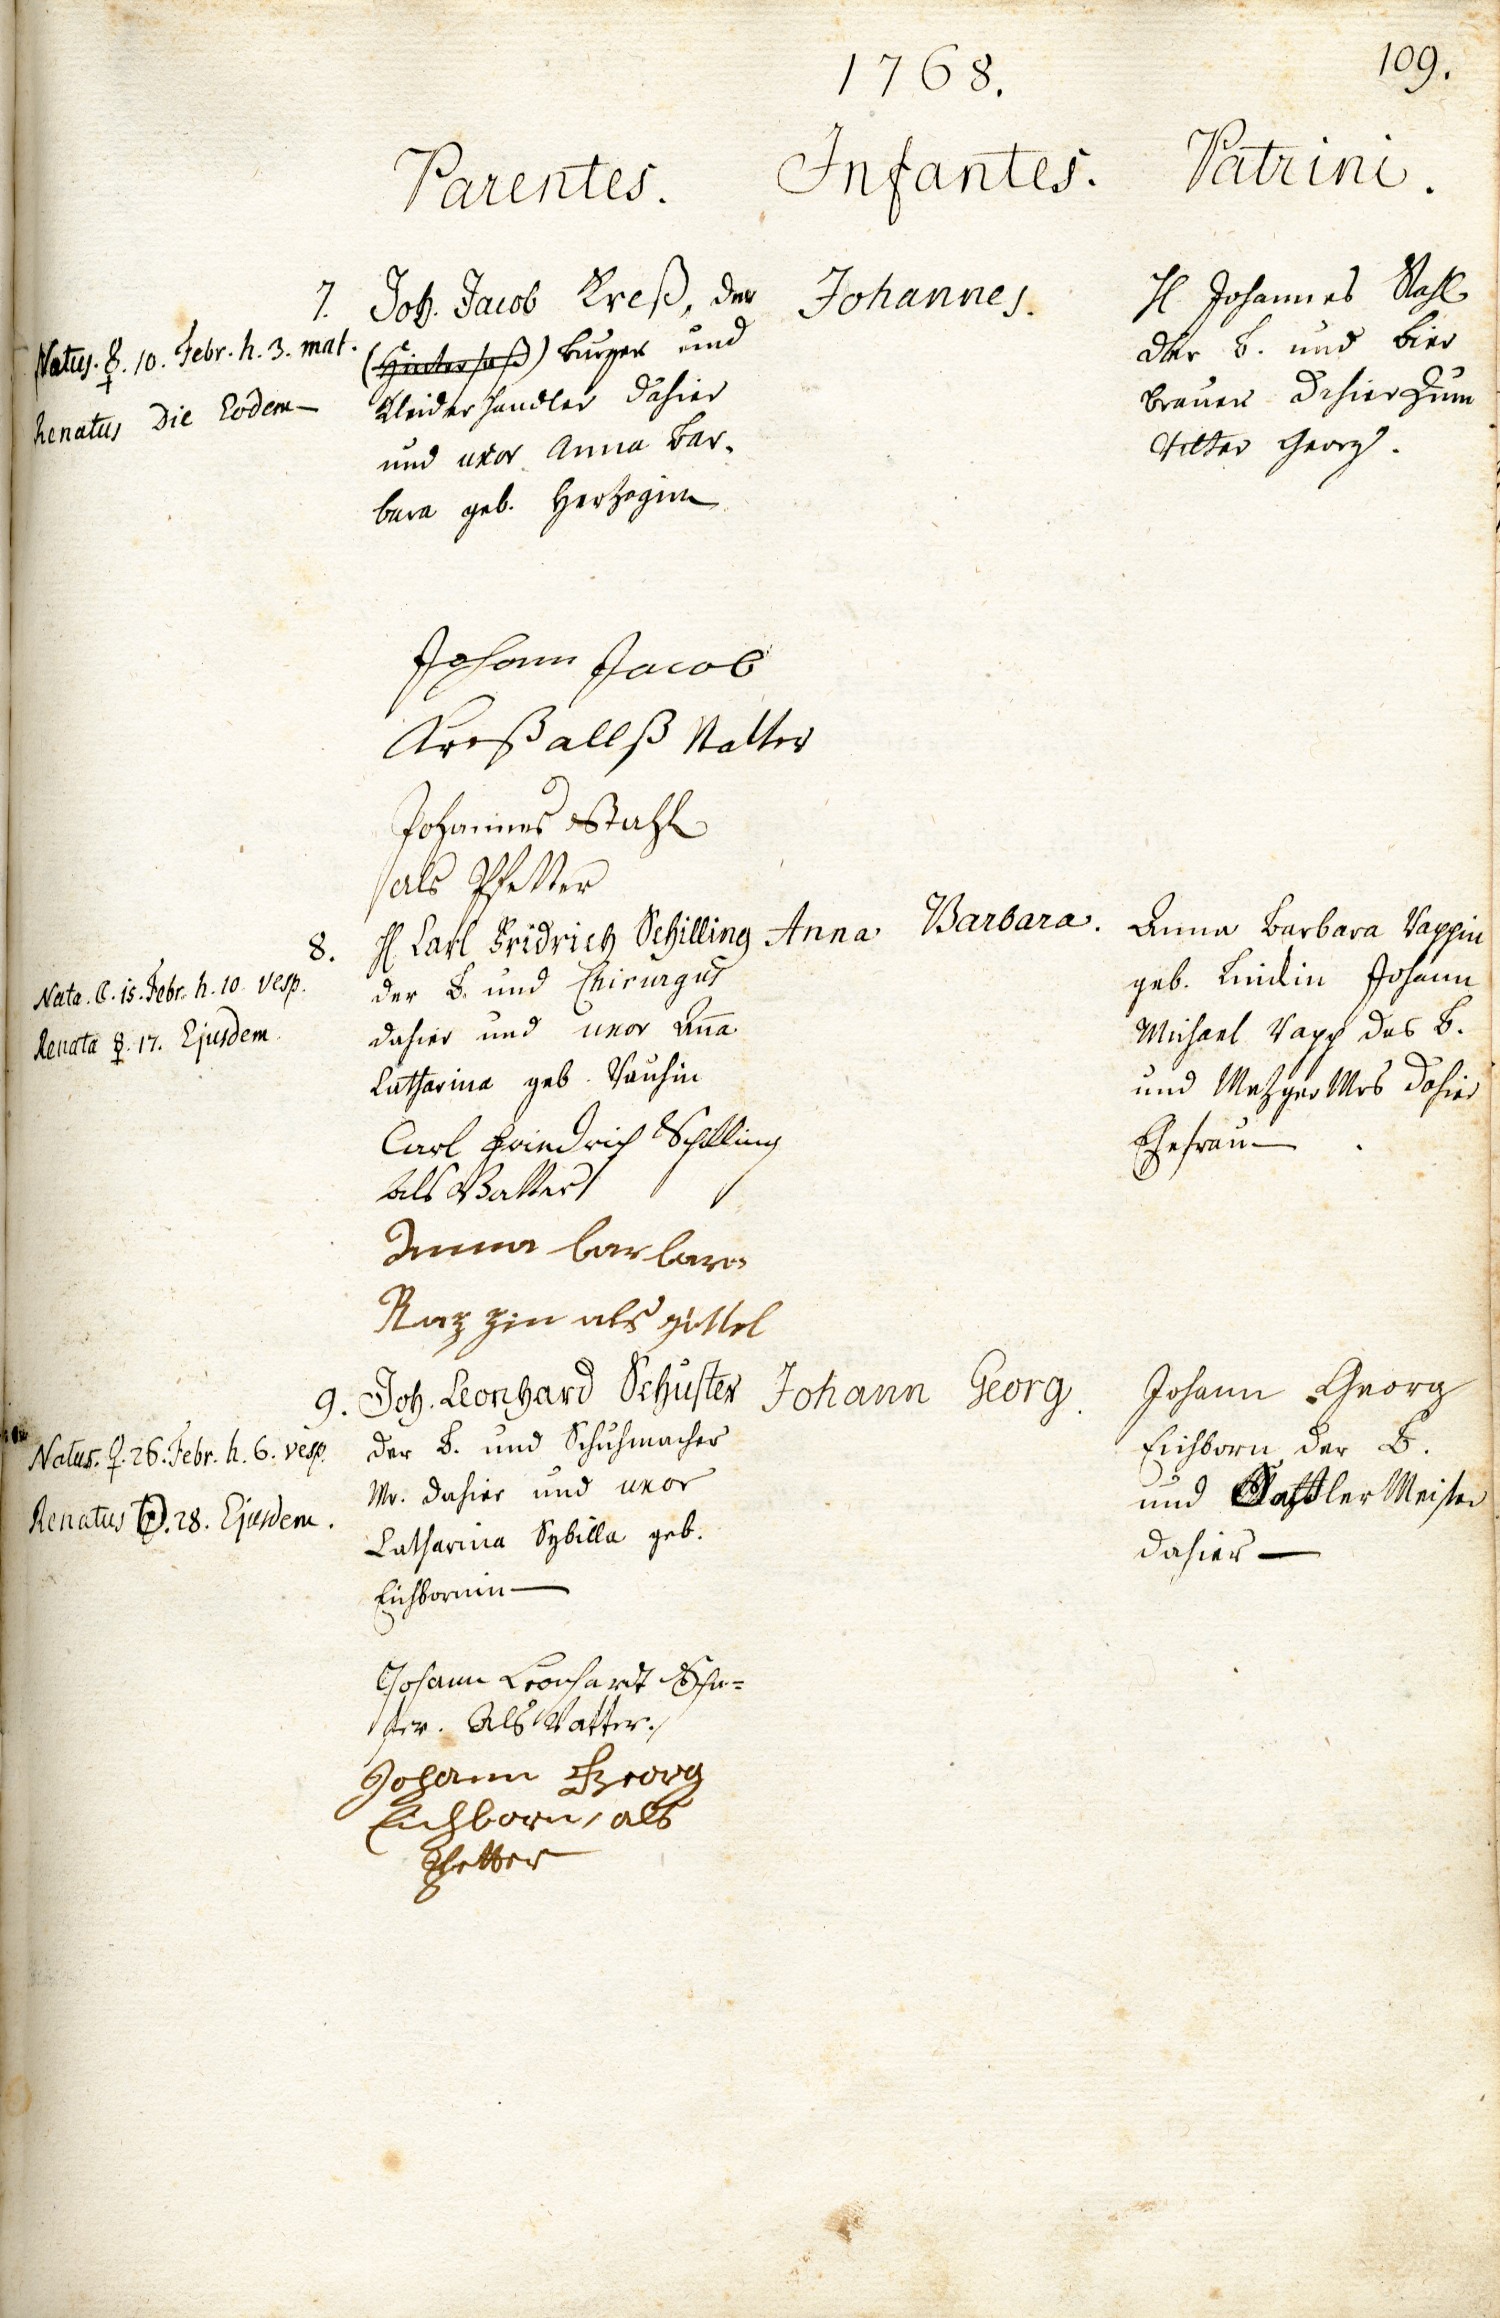 1768.
109.
Parentes. Infantes. Patrini.
7. Joh. Jacob Kreß, der
(Hintersaß) burger und
Kleiderhandler dahier
und uxor Anna Bar-
bara geb. Hertzogin
Natus. ☿. 10. Febr. h. 3. mat.
Renatus Die Eodem
Johannes.
H Johannes Stahl
der b. und bier
brauer dahier zum
Ritter Georg.
Johann Jacob
Kreß allß Vatter
Johannes Stahl
als Pfetter
8. H Carl Fridrich Schilling
der b. und Chirurgus
dahier und uxor Aña
Catharina geb.
Nata. ☾. 15. Febr. h. 10 vesp.
Renata ☿. 17. Ejusdem
Anna Barbara.
Anna Barbara
geb. Lindin Johann
Michael des b.
und Metzger Mrs dahier
Ehefrau
Carl Friedrich Schilling
als Vatter
Anna barbara
als göttel
9. Joh. Leonhard Schuster
der b. und Schuhmacher
Mr. dahier und uxor
Catharina Sybilla geb.
Eichbornin
Natus. ♀. 26. Febr. h. 6. vesp.
Renatus ☉. 28. Ejusdem.
Johann Georg.
Johann Georg
Eichborn der b.
und Sattler Meister
dahier
Johann Leonhardt Schu=
ster. Als Vatter.
Johann Georg
Eichborn, als
Pfetter